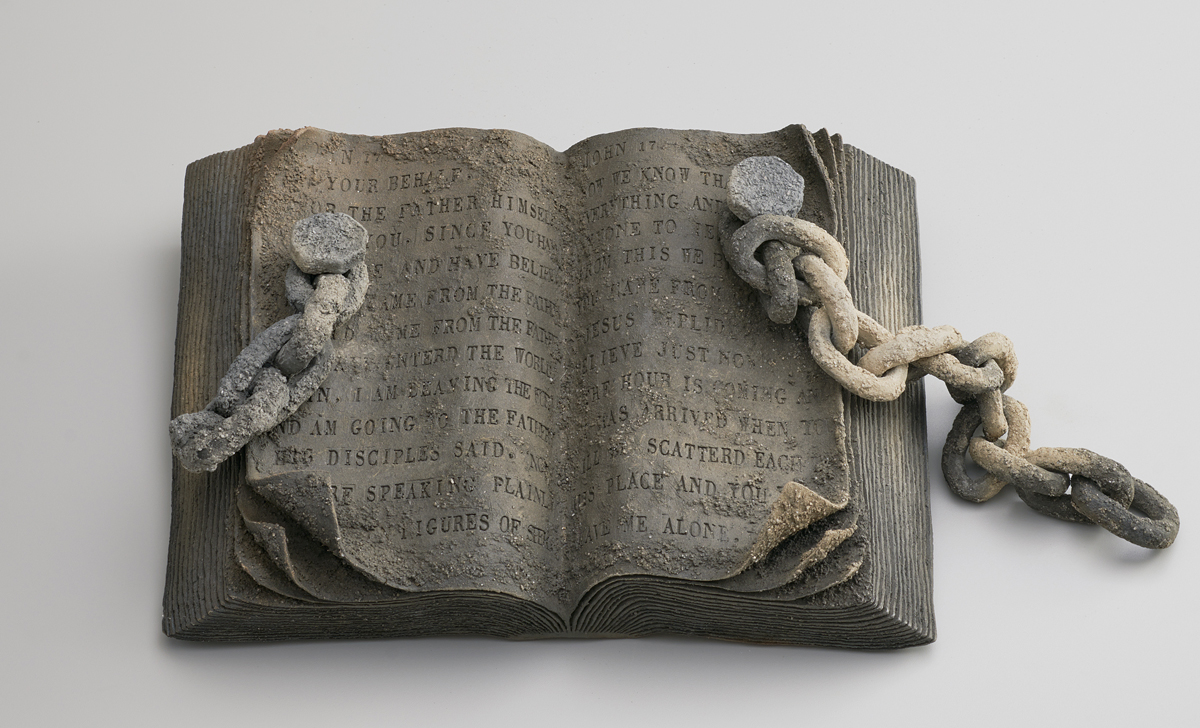 N 17
YOUR BEHALF.
FOR THE FATHER HIMSELF
YOU. SINCE YOU HAVE
AND HAVE BELIE
CAME FROM THE FATH
COME FROM THE FATHER
ENTERD THE WORLD
IN. I AM LEAVING THE
ND AM GOING TO THE FATHER
HIS DISCIPLES SAID. NO
SPEAKING PLAINL
FIGURES OF
JOHN 17.
NOW WE KNOW THA
EVERYTHING AND
NYONE TO
FROM THIS WE
CAME FROM
JESUS REPLID
ELIEVE JUST NOW
THE HOUR IS COMING A
HAS ARRIVED WHEN YO
SCATTERD EACH
PLACE AND YOU
AVE ME ALONE.